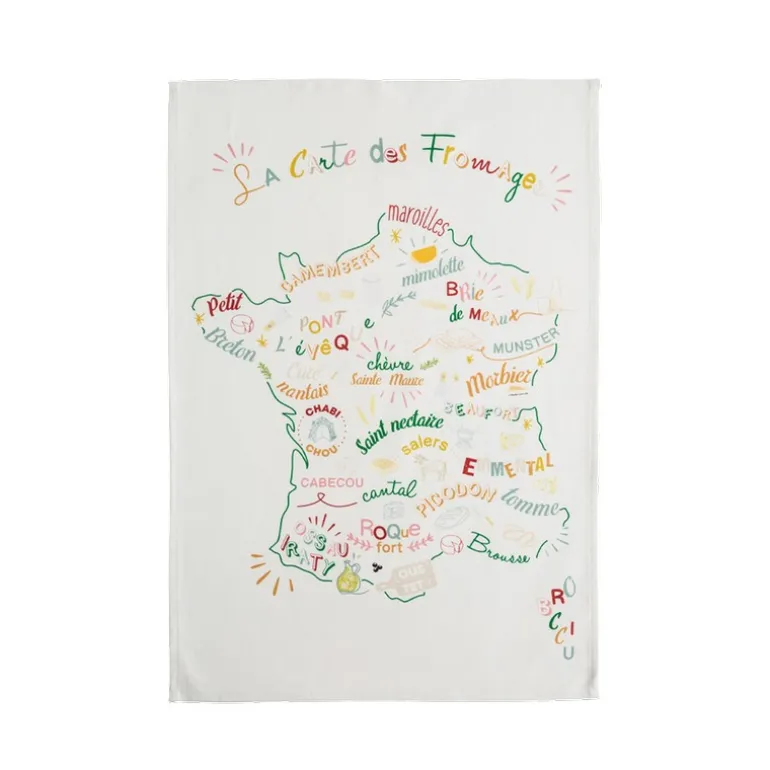 La Carte des Fromages
maroilles
CAMEMBERT
mimolette
Petit
Breton
BRie
de MeAuX
PONT
L'évêQUe
MUNSTER
chèvre
Sainte Maure
Curé
nantais
Morbier
BEAUFORT
CHABI
CHOU
Saint nectaire
salers
EMMENTAL
CABECOU
cantal
PICODON
tomme
ROQue
fort
OSSAU
IRATY
Brousse
BROCCIU